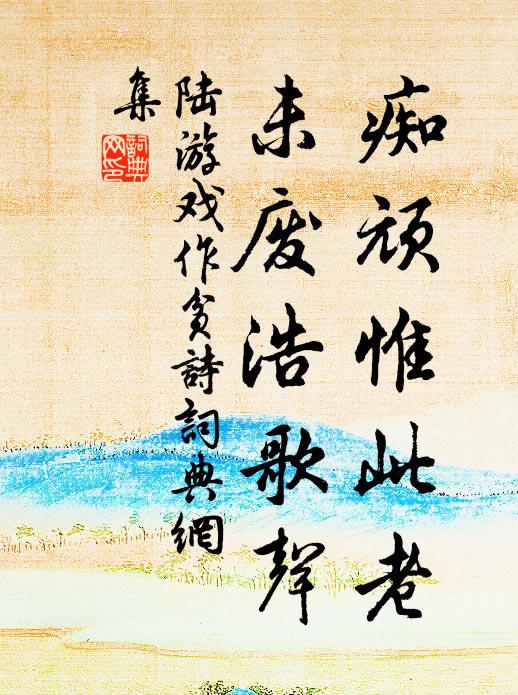 痴顽惟此老
未废浩歌聲
陆游戏作贫詩詞典網
集
詞典
网印